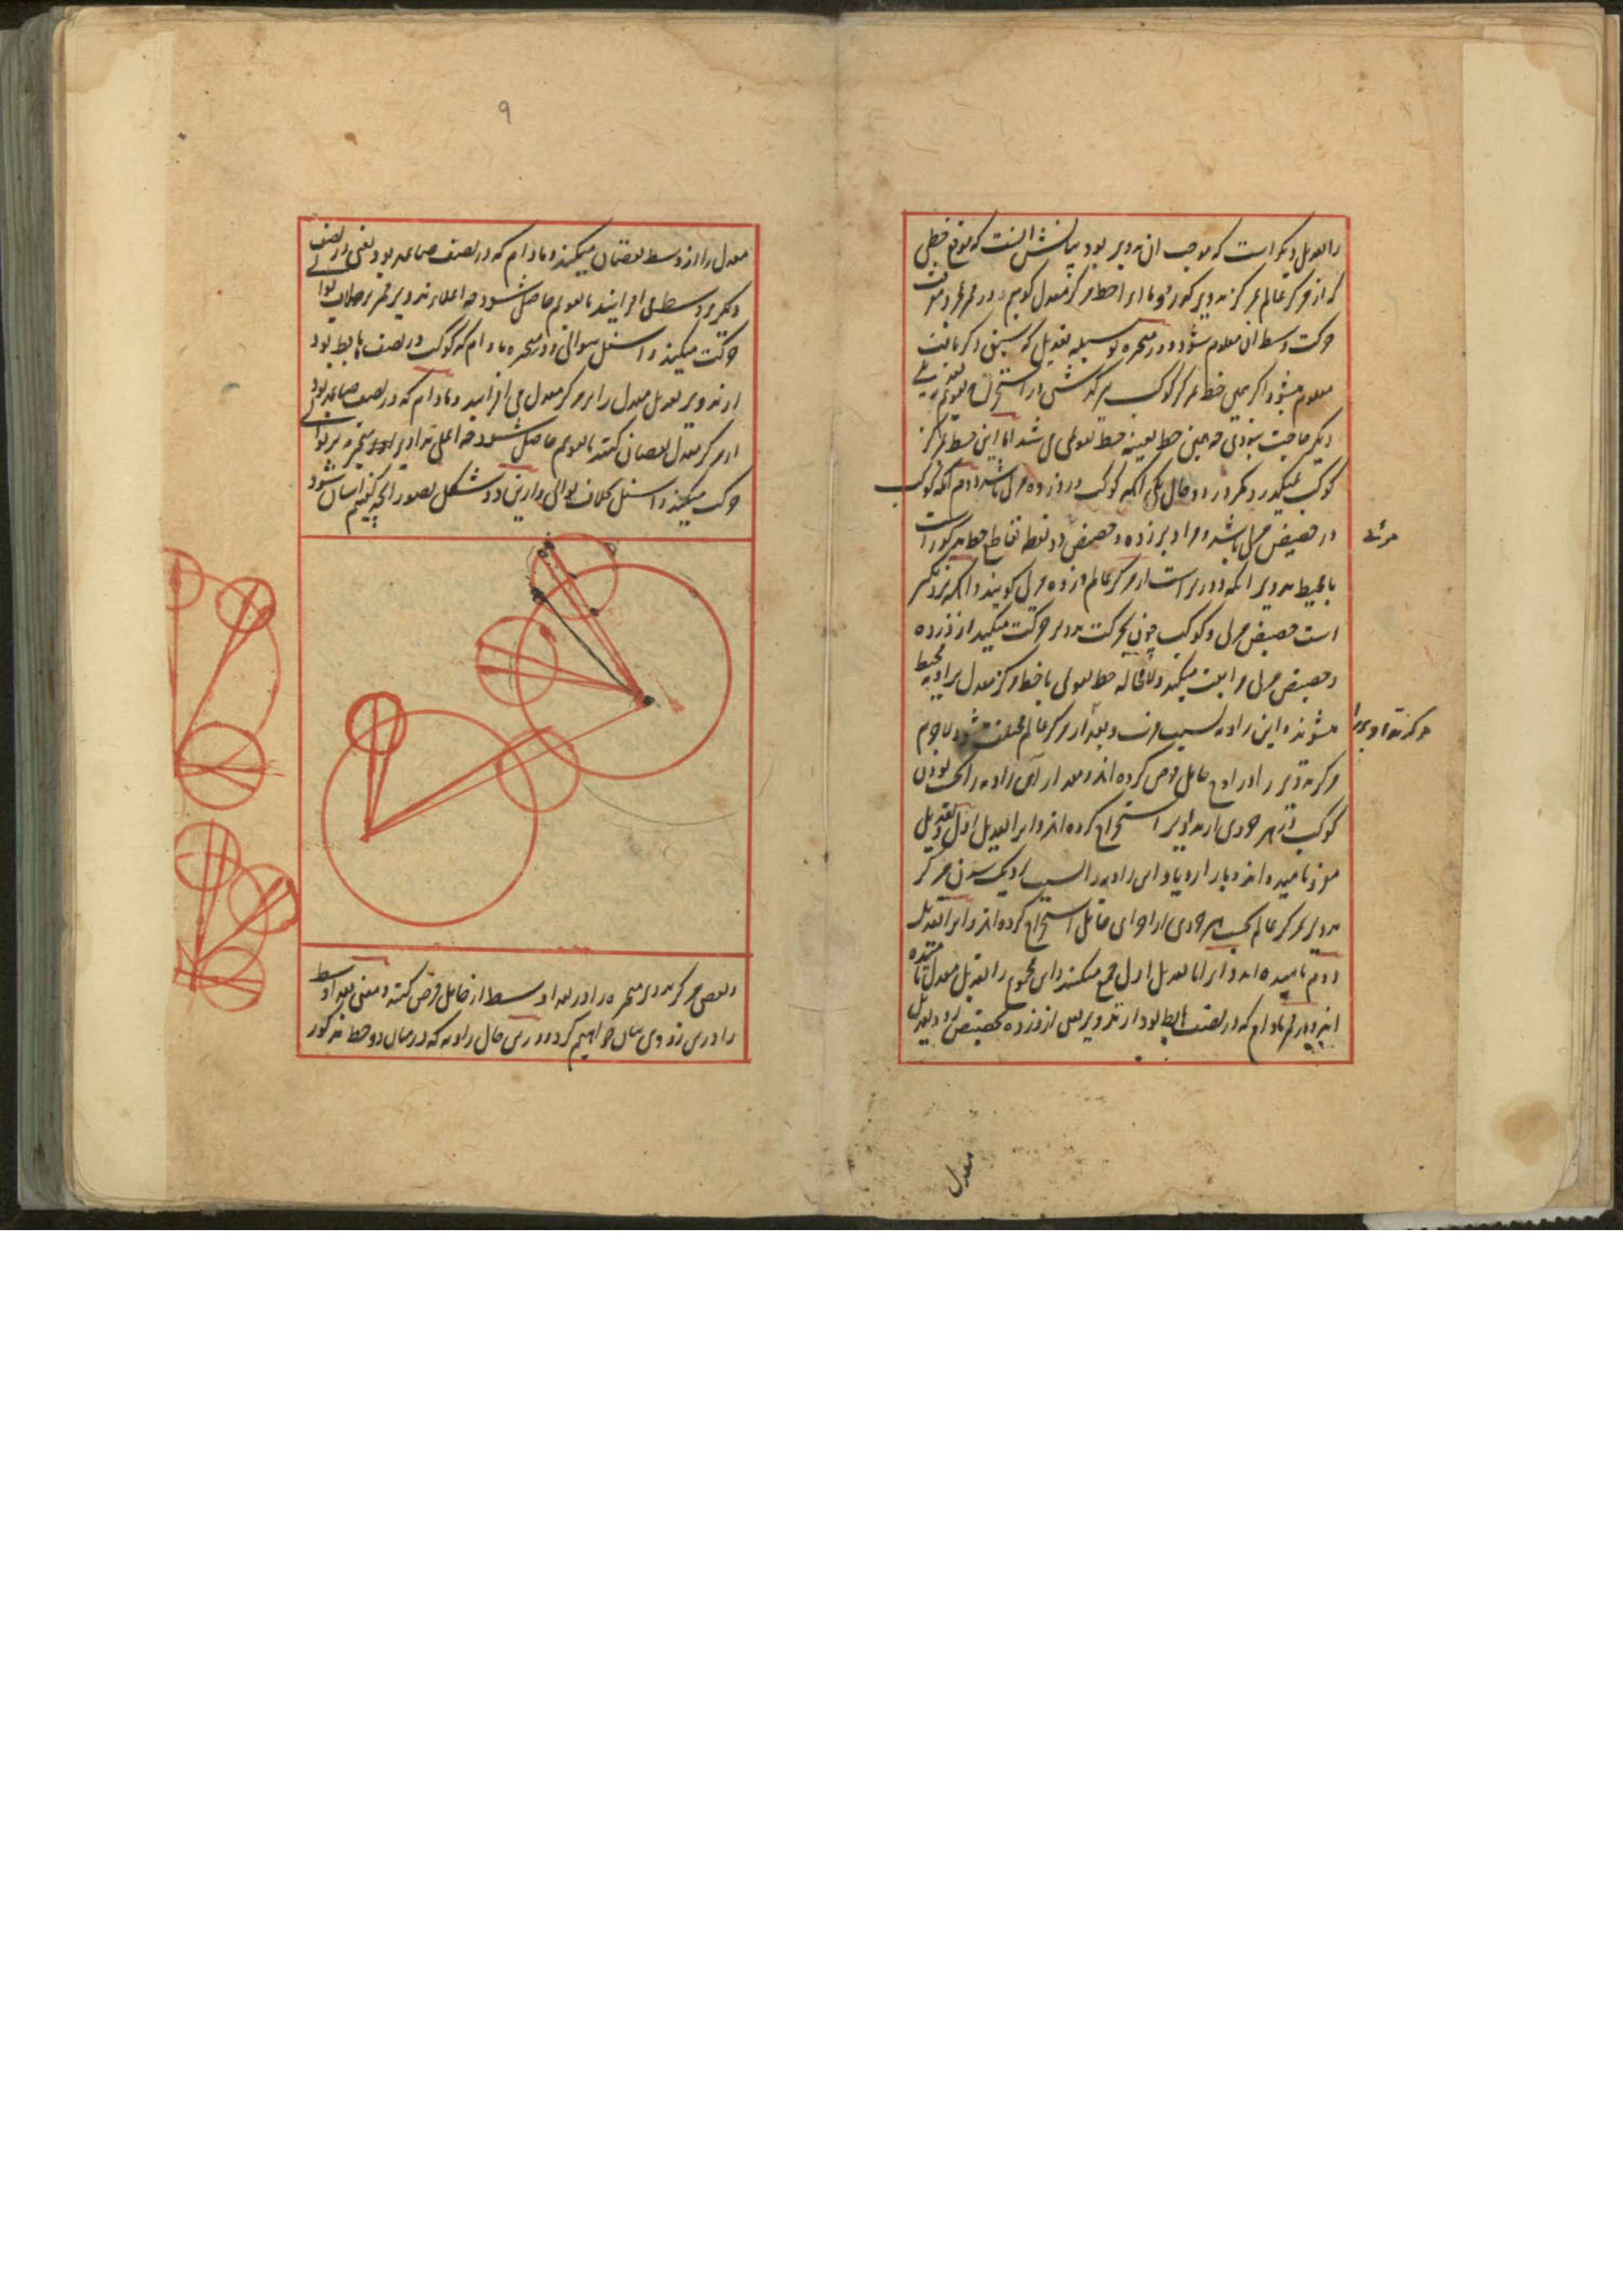 را تعدیل دیگر است که موجب آن تدویر بود بیانش آنست که موقع خطی
که از مرکز عالم بمرکز تدویر گذرد و ما آنرا خط مرکز معدل گوییم در قمر بمعرفت
حرکت وسط آن معلوم شود و در متحیره بوسیله تعدیل که سبق ذکر یافت
معلوم میشود اگر همین خط بمرکز کوکب میگذشتی در استخراج تقویم بتعدیلی
دیگر حاجت نبودی چه همین خط بعینه خط تقویمی می شد اما این خط بمرکز
کوکب نمیگذرد مگر در دو حال یکی آنکه کوکب در ذروه مرئی باشد دوم آنکه کوکب
در حضیض مرئی باشد و مراد بذروه و حضیض دو نقطه تقاطع خط مذکور است
مرئی
با محیط تدویر آنکه دورتر است از مرکز عالم ذروه مرئی گویند و آنکه نزدیکتر
است حضیض مرئی و کوکب چون بحرکت تدویر حرکت میکند از ذروه
و حضیض مرئی مباینت میکند و لامحاله خط تقویمی با خط مرکز معدل بزاویه محیط
میشوند و این زاویه بسبب قرب و بعد از مرکز عالم مختلف میشود لاجرم
مرکز تداویر را
مرکز تدویر را در اوج حامل فرض کرده اند و مقدار آن زاویه را بحسب بودن
کوکب در هر جزوی از تداویر استخراج کرده اند و آنرا تعدیل اول و تعدیل
مفرد نامیده اند و باز ازدیاد این زاویه را بسبب نزدیک شدن مرکز
تدویر بمرکز عالم بحسب هر جزوی از اجزای حامل استخراج کرده اند و آنرا تعدیل
دوم نامیده اند و آنرا با تعدیل اول جمع میکنند و این مجموع را تعدیل معدل نامیده
اند و در قمر مادام که در نصف هابط بود از تدویر یعنی از ذروه بحضیض رود تعدیل
معدل
۹
معدل را از وسط نقصان میکنند و مادام که در نصف صاعد بود یعنی در نصف
دیگر بر وسط می افزایند تا تقویم حاصل شود چه اعلای تدویر قمر بر خلاف توالی
حرکت میکند و اسفل بتوالی و در متحیره مادام که کوکب در نصف هابط بود
از تدویر تعدیل معدل را بر مرکز معدل می افزایند و مادام که در نصف صاعد بود
از مرکز معدل نقصان کنند تا تقویم حاصل شود چه اعلی تداویر متحیره بر توالی
حرکت میکند و اسفل بخلاف توالی و از این دو شکل تصور آنچه گفتیم آسان شود
و بعضی مرکز تدویر متحیره را در بعد اوسط از حامل فرض کنند و معنی بعد اوسط
را درین زودی بیان خواهیم کرد و درین حال زاویه که در میان دو خط مذکور